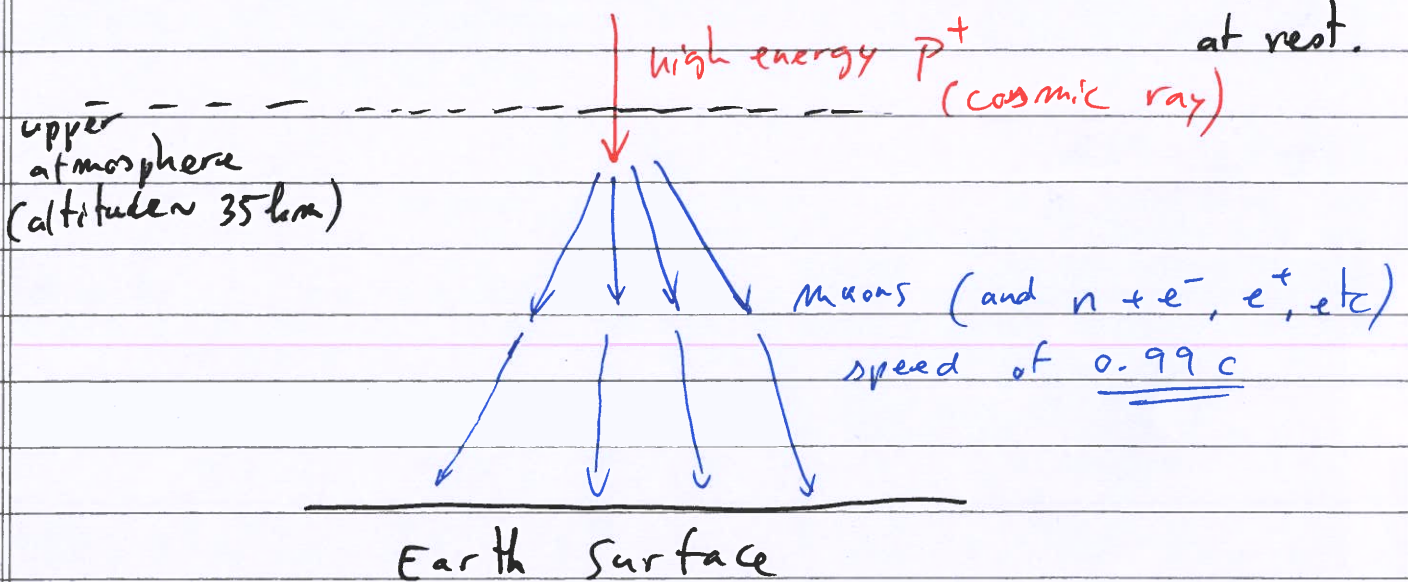 at rest.
high energy p⁺
(cosmic ray)
upper
atmosphere
(altitude ~ 35 km)
muons (and n + e⁻, e⁺, etc)
speed of 0.99 c
Earth Surface